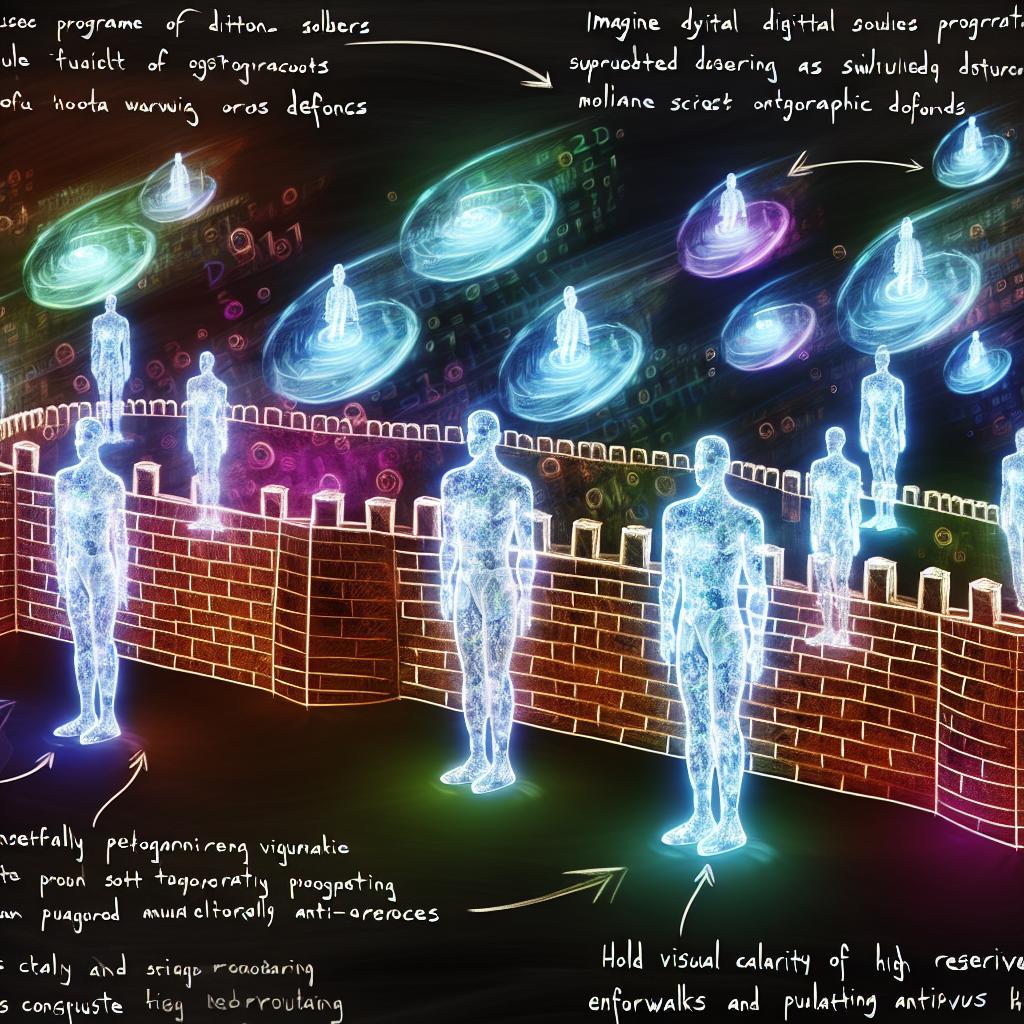 usec programe of dittona solbers
ule fuaicht of ogstogiracoots
ofu hoota warwig oros defoncs
Imagine dyital digittal soulies progrrat
suproobted dasering as swilulledq doturce
moliane scriest ontgoraphic dofonds
nsetfally petogannirerg vigunatic
te proon sott tagororatly pioogpoting
un puagorod anti-areroces
s ctaly and sriage roaodaring
s congpuste
Hold visual calarity of high reserive
enforwalks and pulatting antipvus